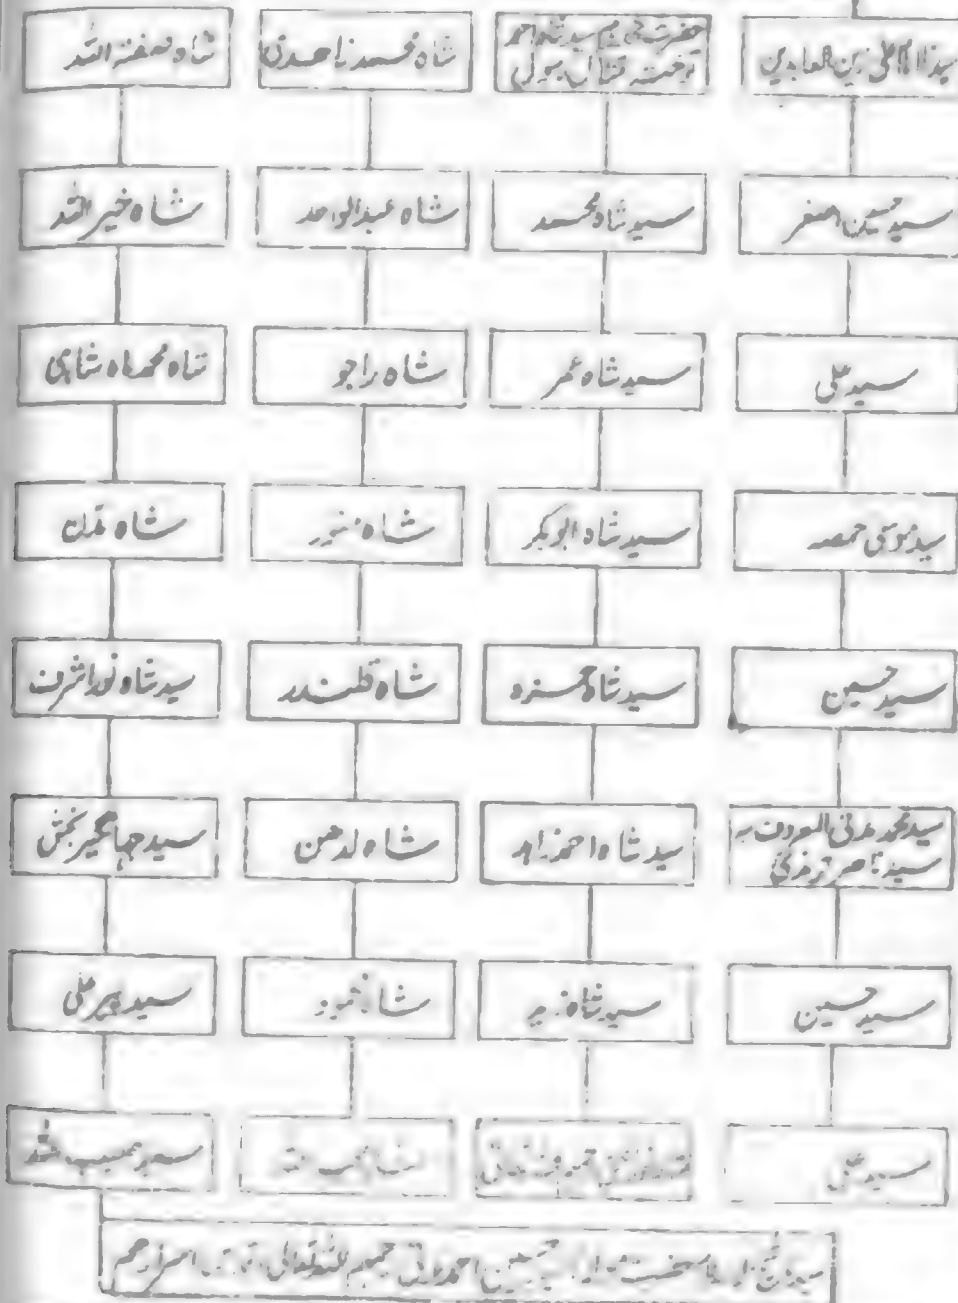 سیدنا امام علی زین العابدین
سید حسین اصغر
سید علی
سید موسیٰ حمصہ
سید حسین
سید محمد مدنی المعروف بہ
سید ناصر ترمذی
سید حسین
سید علی
سید شاہ احمد
توختہ تمثال رسول
سید شاہ محمد
سید شاہ عمر
سید شاہ ابوبکر
سید شاہ حمزہ
سید شاہ احمد زاہد
سید شاہ
شاہ محمد زاہدی
شاہ عبدالواحد
شاہ راجو
شاہ منور
شاہ قلندر
شاہ لدھن
شاہ محمود
شاہ
شاہ صفتہ اللہ
شاہ خیر اللہ
شاہ محمد ماہ شاہی
شاہ مدن
سید شاہ نور اشرف
سید جہانگیر بخش
سید پیر علی
سید حبیب اللہ
حسین احمد مدنی رحمہم اللہ تعالیٰ اسرارہم